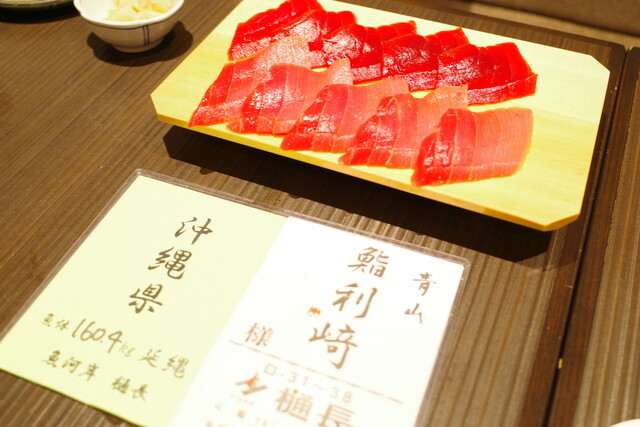 沖縄県
魚体 160.4kg 延縄
魚河岸 樋長
青山
鮨利﨑
様
ロ-31~38
樋長